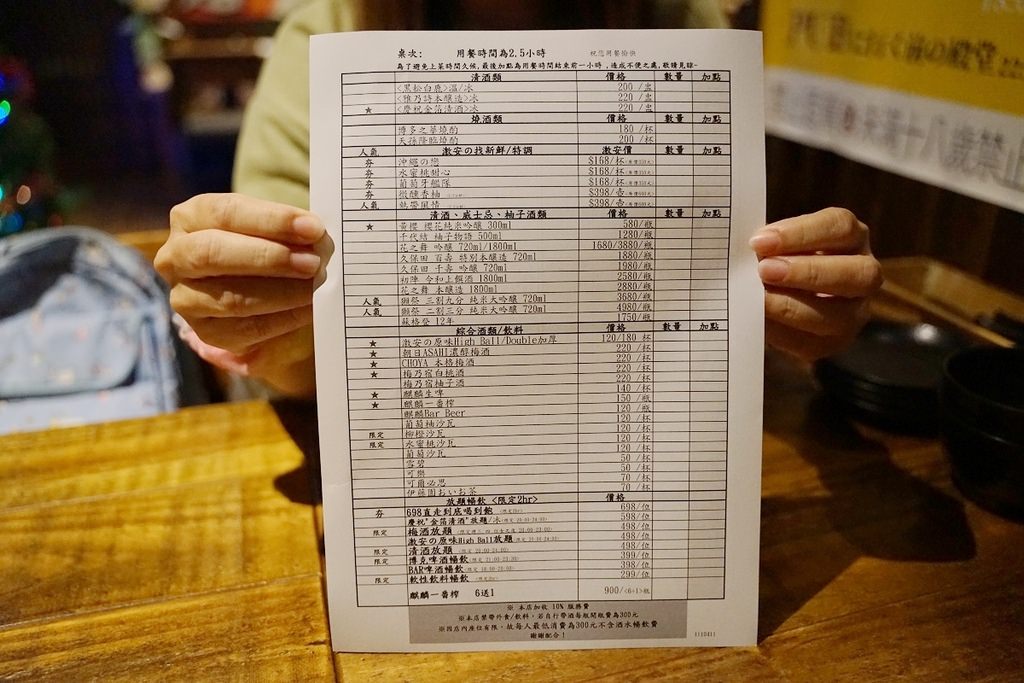 桌次: 用餐時間為2.5小時 祝您用餐愉快
為了避免上菜時間久候,最後加點為用餐時間結束前一小時,造成不便之處,敬請見諒~
清酒類 價格 數量 加點
<黑松白鹿>溫/冰 200 /盅
<雅乃詩本釀造>冰 220 /盅
★ <慶祝金箔清酒>冰 220 /盅
燒酒類 價格 數量 加點
博多之華燒酌 180 /杯
天孫降臨燒酌 200 /杯
人氣 激安の找新鮮/特調 激安價 數量 加點
夯 沖繩の戀 $168/杯
夯 水蜜桃甜心 $168/杯
夯 葡萄牙艦隊 $168/杯
夯 微醺香柚 $398/壺
人氣 熱帶風情 $398/壺
清酒、威士忌、柚子酒類 價格 數量 加點
★ 黃櫻 櫻花純米吟釀 300ml 580/瓶
千代結 柚子物語 500ml 1280/瓶
花之舞 吟釀 720ml/1800ml 1680/3880/瓶
久保田 百壽 特別本釀造 720ml 1880/瓶
久保田 千壽 吟釀 720ml 1980/瓶
初陣 令和上撰酒 1800ml 2580/瓶
花之舞 本釀造 1800ml 2880/瓶
人氣 獺祭 三割九分 純米大吟釀 720ml 3680/瓶
人氣 獺祭 二割三分 純米大吟釀 720ml 4980/瓶
蘇格登 12年 1750/瓶
綜合酒類/飲料 價格 數量 加點
★ 激安の原味High Ball/Double加厚 120/180 杯
★ 朝日ASAHI濃醇梅酒 220 /杯
★ CHOYA 本格梅酒 220 /杯
★ 梅乃宿白桃酒 220 /杯
梅乃宿柚子酒 220 /杯
★ 麒麟生啤 140 /杯
★ 麒麟一番搾 150 /瓶
麒麟Bar Beer 120 /瓶
葡萄柚沙瓦 120 /杯
限定 柳橙沙瓦 120 /杯
限定 水蜜桃沙瓦 120 /杯
葡萄沙瓦 120 /杯
雪碧 50 /杯
可樂 50 /杯
可爾必思 70 /杯
伊藤園おいお茶 70 /杯
放題暢飲 <限定2hr> 價格
夯 698直走到底喝到飽 698/位
慶祝"金箔清酒"放題/冰 598/位
限定 梅酒放題 498/位
激安の原味High Ball放題 498/位
限定 清酒放題 498/位
限定 博克啤酒暢飲 399/位
BAR啤酒暢飲 398/位
限定 軟性飲料暢飲 299/位
麒麟一番搾 6送1 900/<6+1>瓶
※ 本店加收 10% 服務費
※本店禁帶外食/飲料,若自行帶酒每瓶開瓶費為300元
※因店內座位有限,故每人最低消費為300元不含酒水暢飲費
謝謝配合!
1110411